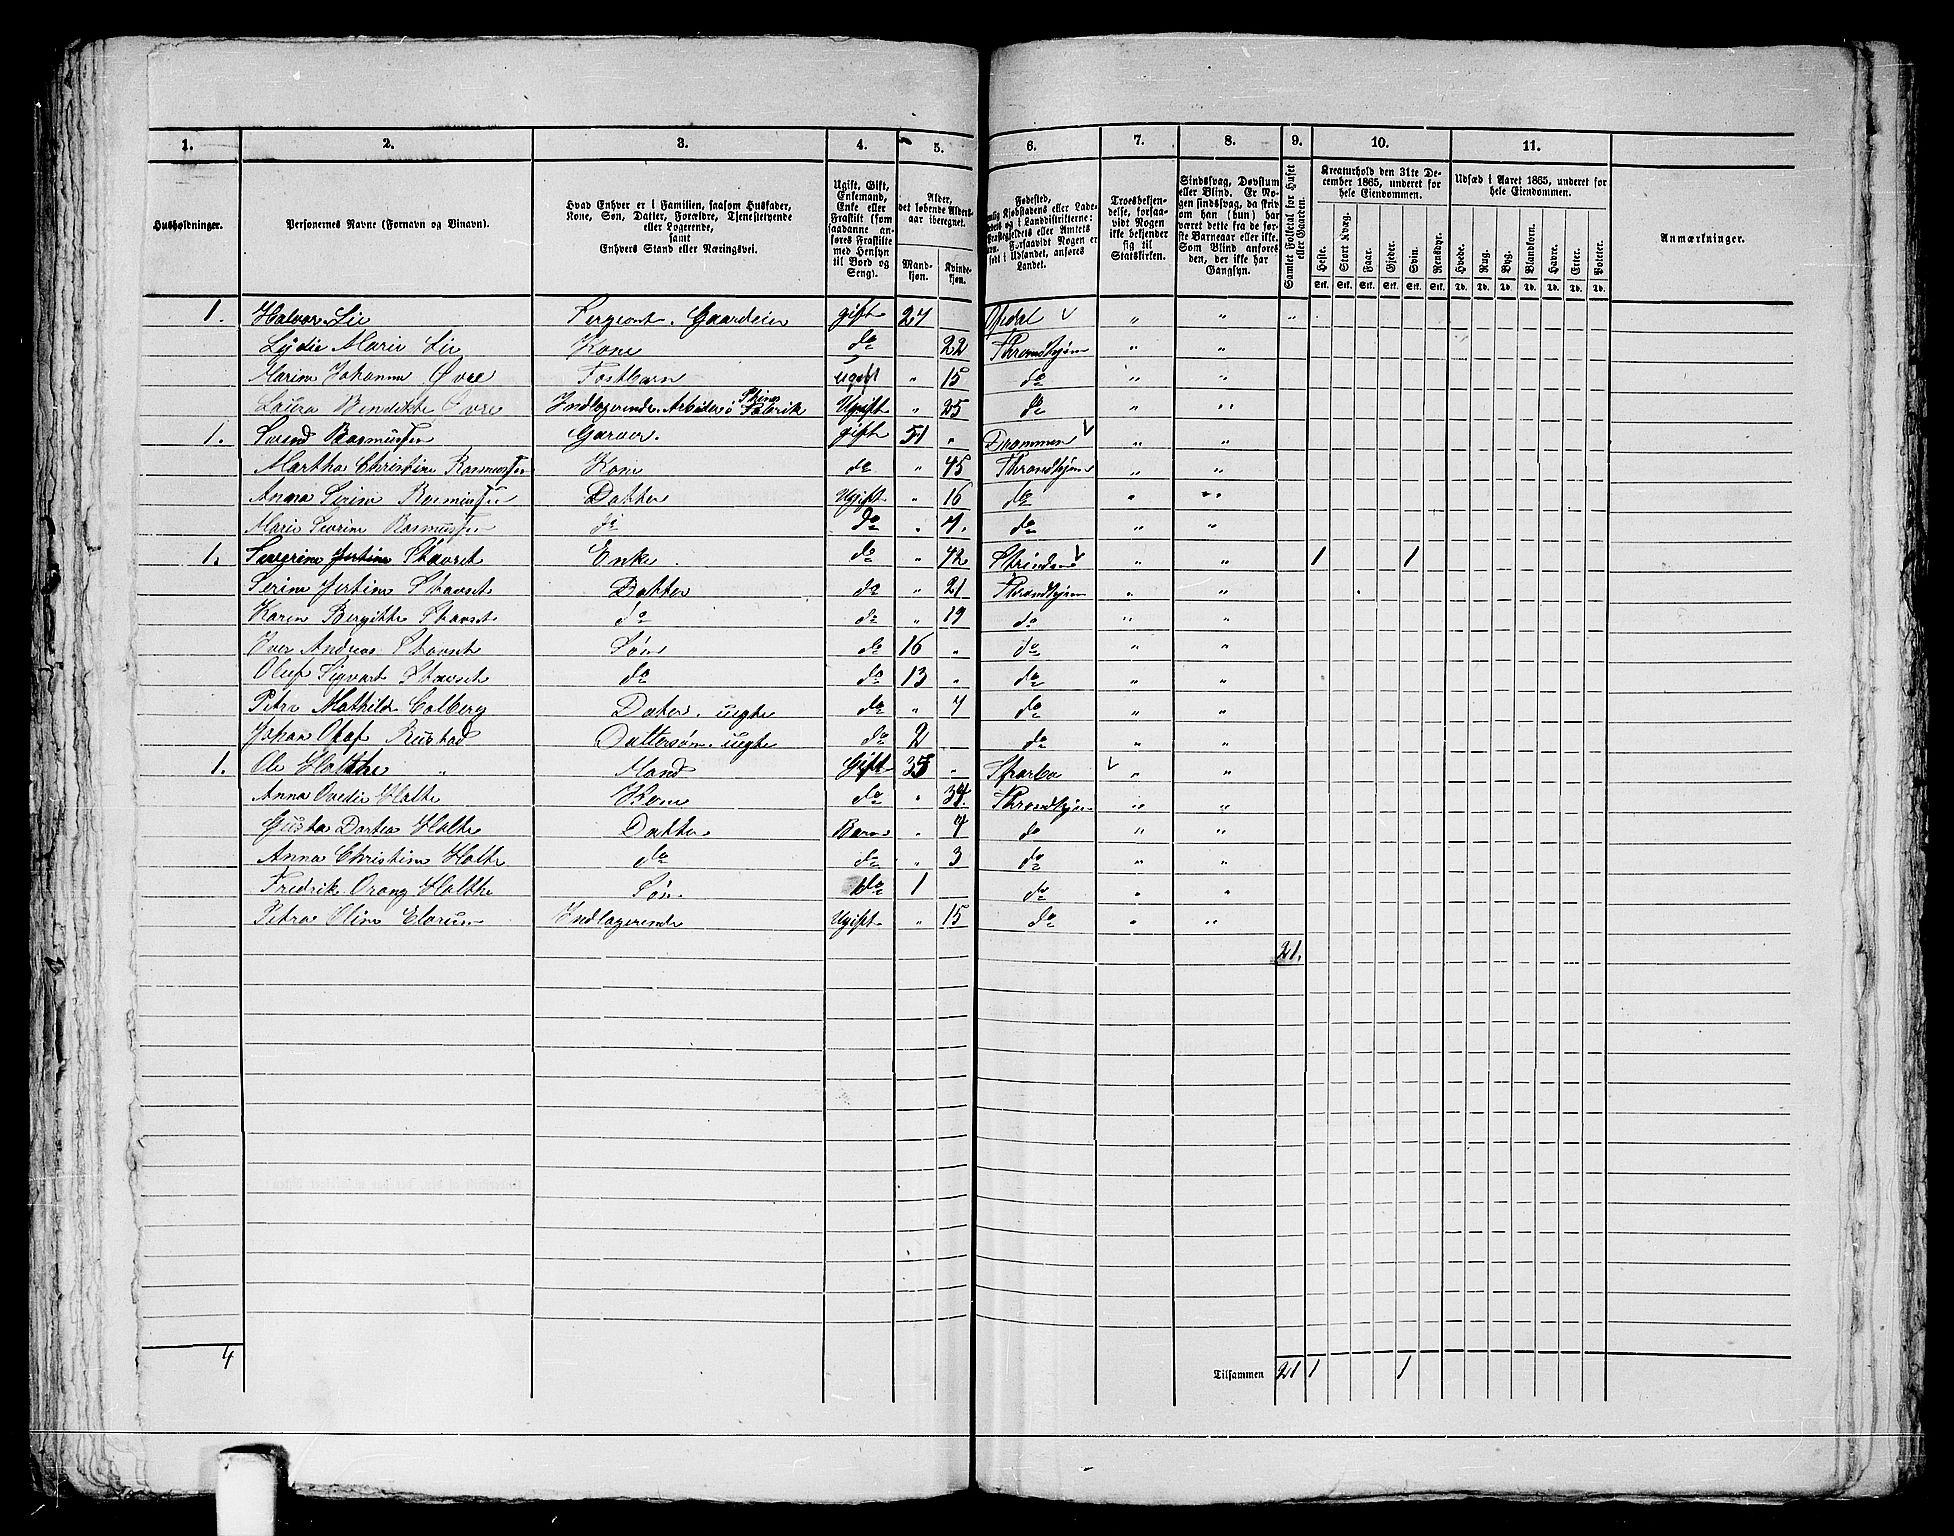 1. 2. 3. 4. 5. 6. 7. 8. 9. 10. 11.
Husholdninger.
Personernes Navne (Fornavn og Binavn).
Hvad Enhver er i Familien, saasom Husfader, Kone, Søn, Datter, Forældre, Tjenestetyende eller Logerende, samt Enhvers Stand eller Næringsvei.
Ugift, Gift, Enkemand, Enke eller Fraskilt (som saadanne anføres Fraskilte med Hensyn til Bord og Seng).
Alder, det løbende Aldersaar iberegnet.
Mandkjøn. Kvindekjøn.
Fødested,
Forsaavidt Nogen er født i Udlandet, anføres Landet.
Troesbekjendelse, forsaavidt Nogen ikke bekjender sig til Statskirken.
Sindssvag, Døvstum eller Blind. Er Nogen sindssvag, da skrives om han (hun) har været dette fra de første Barneaar eller ikke. Som Blind anføres den, der ikke har Gangsyn.
Samlet Folketal for Huset eller Gaarden.
Kreaturhold den 31te December 1865, underet for hele Eiendommen.
Heste. Stort Kvæg. Faar. Gjeder. Svin. Rensdyr.
Stk. Stk. Stk. Stk. Stk. Stk.
Udsæd i Aaret 1865, underet for hele Eiendommen.
Hvede. Rug. Byg. Blandkorn. Havre. Erter. Poteter.
Td. Td. Td. Td. Td. Td. Td.
Anmærkninger.
1. Halvor Lie Sergeant. Gaardeier gift 27 Opdal " " "
Lydie Marie Lie Kone do 22 Throndhjem " "
Marin Johanne Øvre Fostbarn ugift " 15 do " "
Laura Bendikte Øvre Indlogerende. Arbeider i Fabrik Ugift " 25 do " "
1. Svend Rasmussen Garver. gift 51 " Drammen " "
Martha Christine Rasmussen Kone do " 45 Throndhjem " "
Anna Serine Rasmussen Datter Ugift " 16 do " "
Marie Severine Rasmussen do do " 7. do " "
1. Severine Stavset Enke do " 42 Strinden " " 1 1
Serine Jertine Stavset Datter do " 21 Throndhjem " "
Karen Bergitte Stavset do do " 19 do " "
Iver Andreas Stavset Søn do 16 " do " "
Oluf Sigvart Stavset do do 13 " do " "
Petra Mathilde Colberg Dater. uegte do " 7 do " "
Johan Olaf Rustad Dattersøn. uegte do 2 do " "
1. Ole Holthe " Mand Gift 35 " Sparbo " "
Anna Ovedie Holte Kone do " Throndhjem " "
Gusta Dortea Holte Datter Barn " 7 do " "
Anna Christine Holte do do " 3 do " "
Fredrik Orang Holthe Søn. do 1 do " "
Petra Oline Indlogerende Ugift " 15 do " "
21.
4
Tilsammen 21 1 1